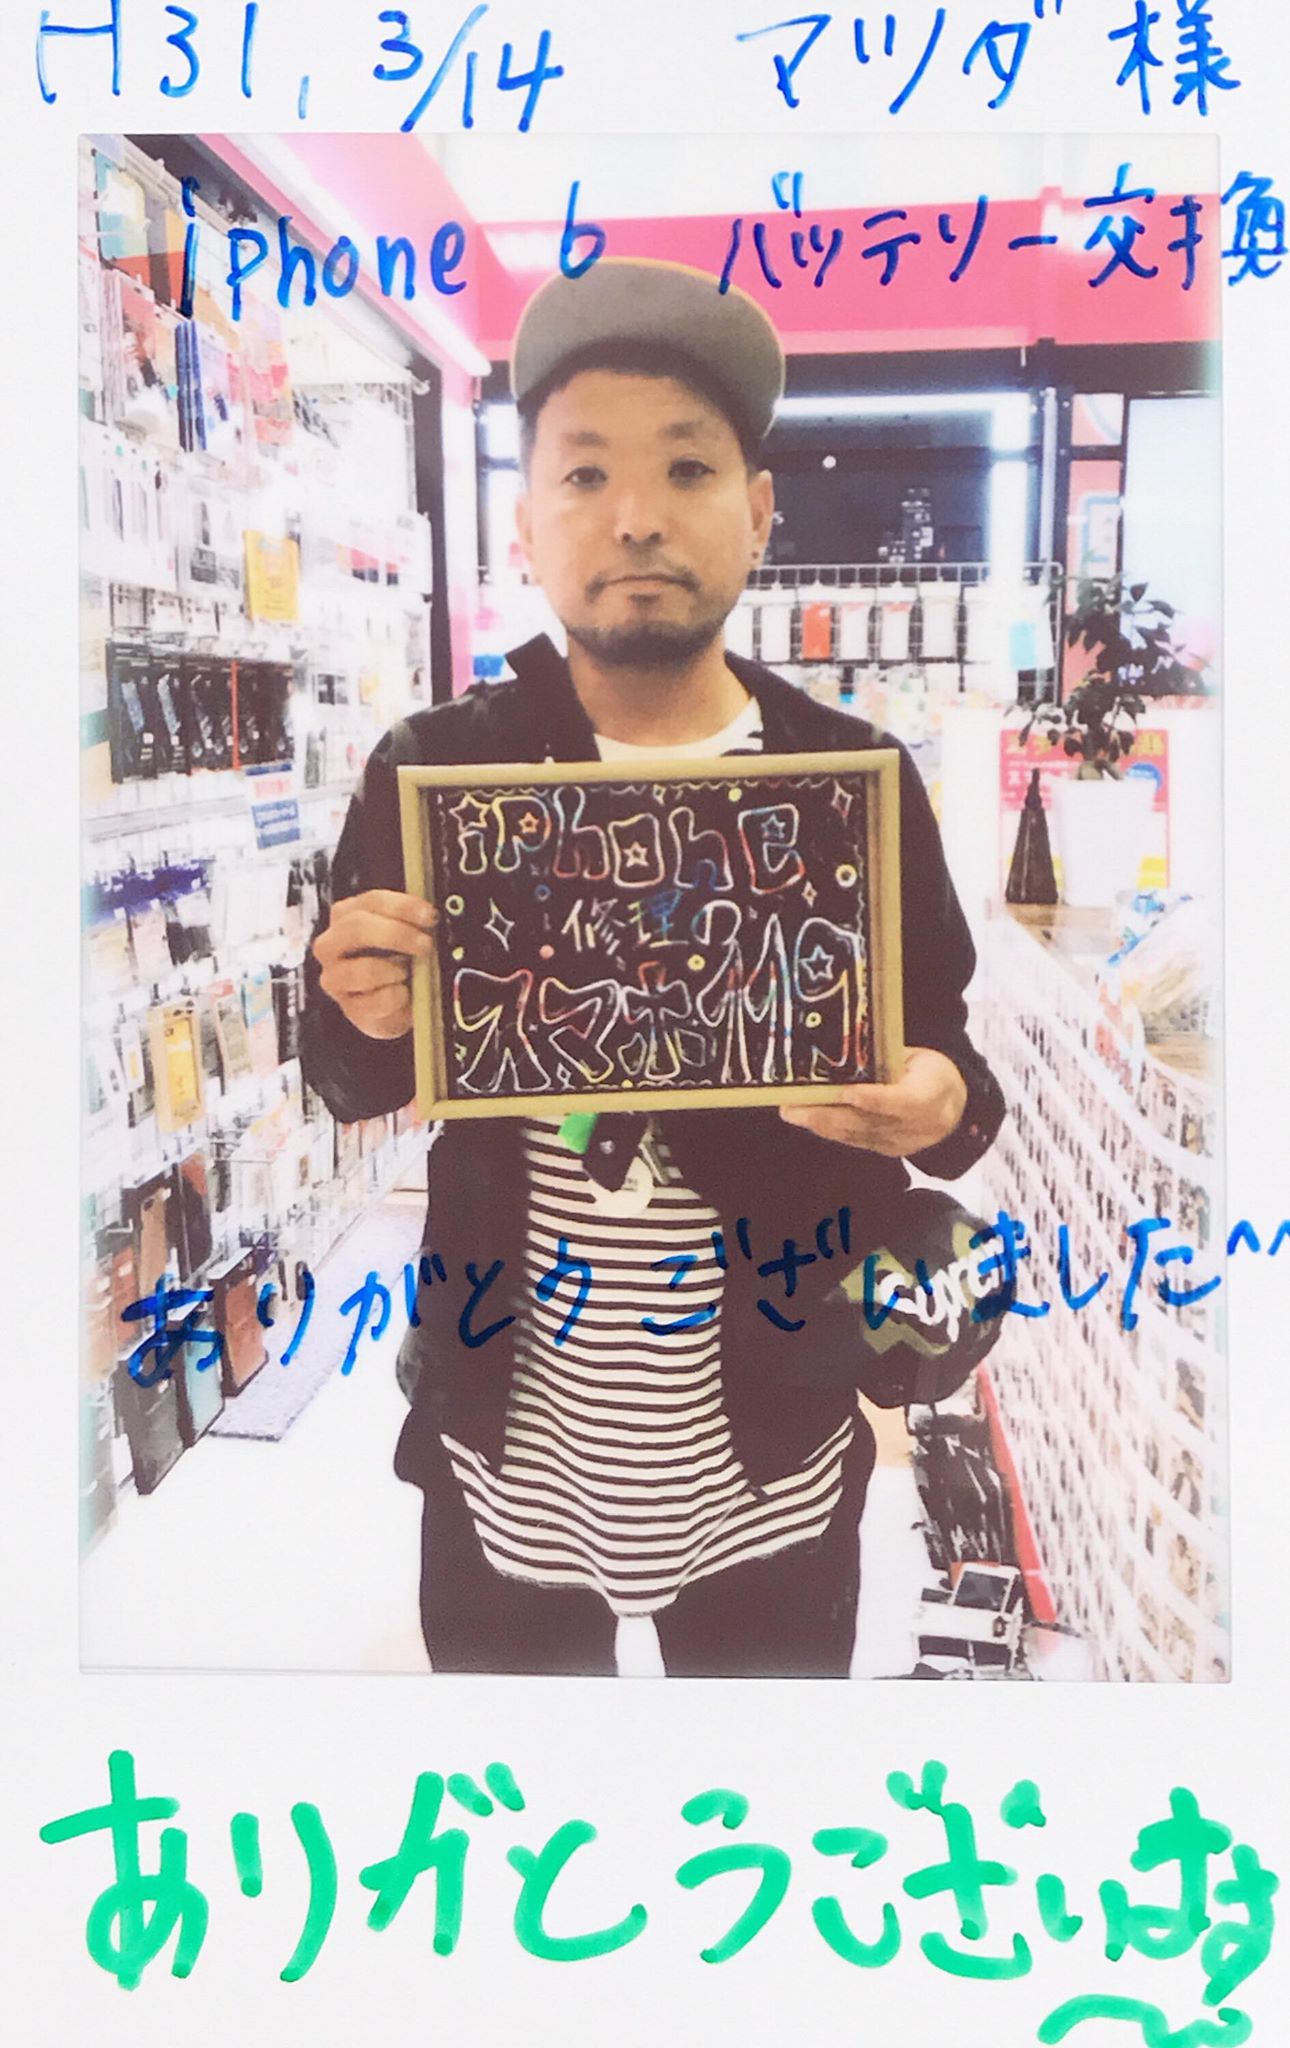 H31, 3/14 マツダ様
iphone 6 バッテリー交換
iPhone
修理の
スマホ119
ありがとうございました^^
Supre
ありがとうございます〜